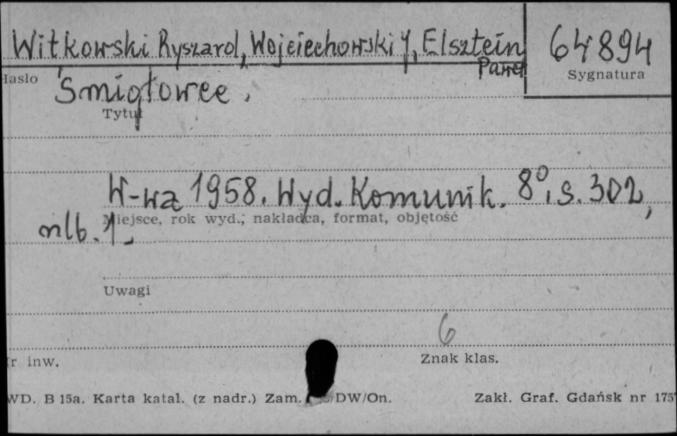 Witkowski Ryszard, Wojciechowski J, Elsztein 64894
Paweł
Hasło Sygnatura
Śmigłowce.
Tytuł
W-wa 1958. Wyd. Komunik. 8°, s. 302,
Miejsce, rok wyd., nakładca, format, objętość
nlb. 1.
Uwagi
6
r inw. Znak klas.
WD. B 15a. Karta katal. (z nadr.) Zam. DW/On. Zakł. Graf. Gdańsk nr 175